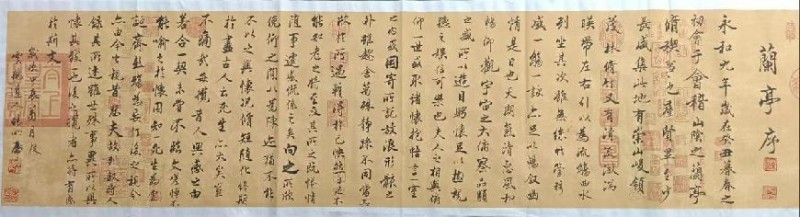 蘭亭序
永和九年歲在癸丑暮春之
初會于會稽山陰之蘭亭
脩稧事也群賢畢至少
長咸集此地有崇山峻領
茂林脩竹又有清流激湍
暎帶左右引以為流觴曲水
列坐其次雖無絲竹管絃之
盛一觴一詠亦足以暢敘幽
情是日也天朗氣清惠風和
暢仰觀宇宙之大俯察品類
之盛所以遊目騁懷足以極視
聽之娛信可樂也夫人之相與俯
仰一世或取諸懷抱悟言一室
之內或因寄所託放浪形骸之
外雖趣舍萬殊靜躁不同當其
欣於所遇蹔得於己怏然自足不
知老之將至及其所之既惓情
隨事遷感慨係之矣向之所欣
俛仰之間以為陳迹猶不能
不以之興懷況脩短隨化終期
於盡古人云死生亦大矣豈
不痛哉每攬昔人興感之由
若合一契未嘗不臨文嗟悼不
能喻之於懷固知一死生為虛
誕齊彭殤為妄作後之視今
亦由今之視昔悲夫故列敘時人
錄其所述雖世殊事異所以興
懷其致一也後之攬者亦將有感
於斯文